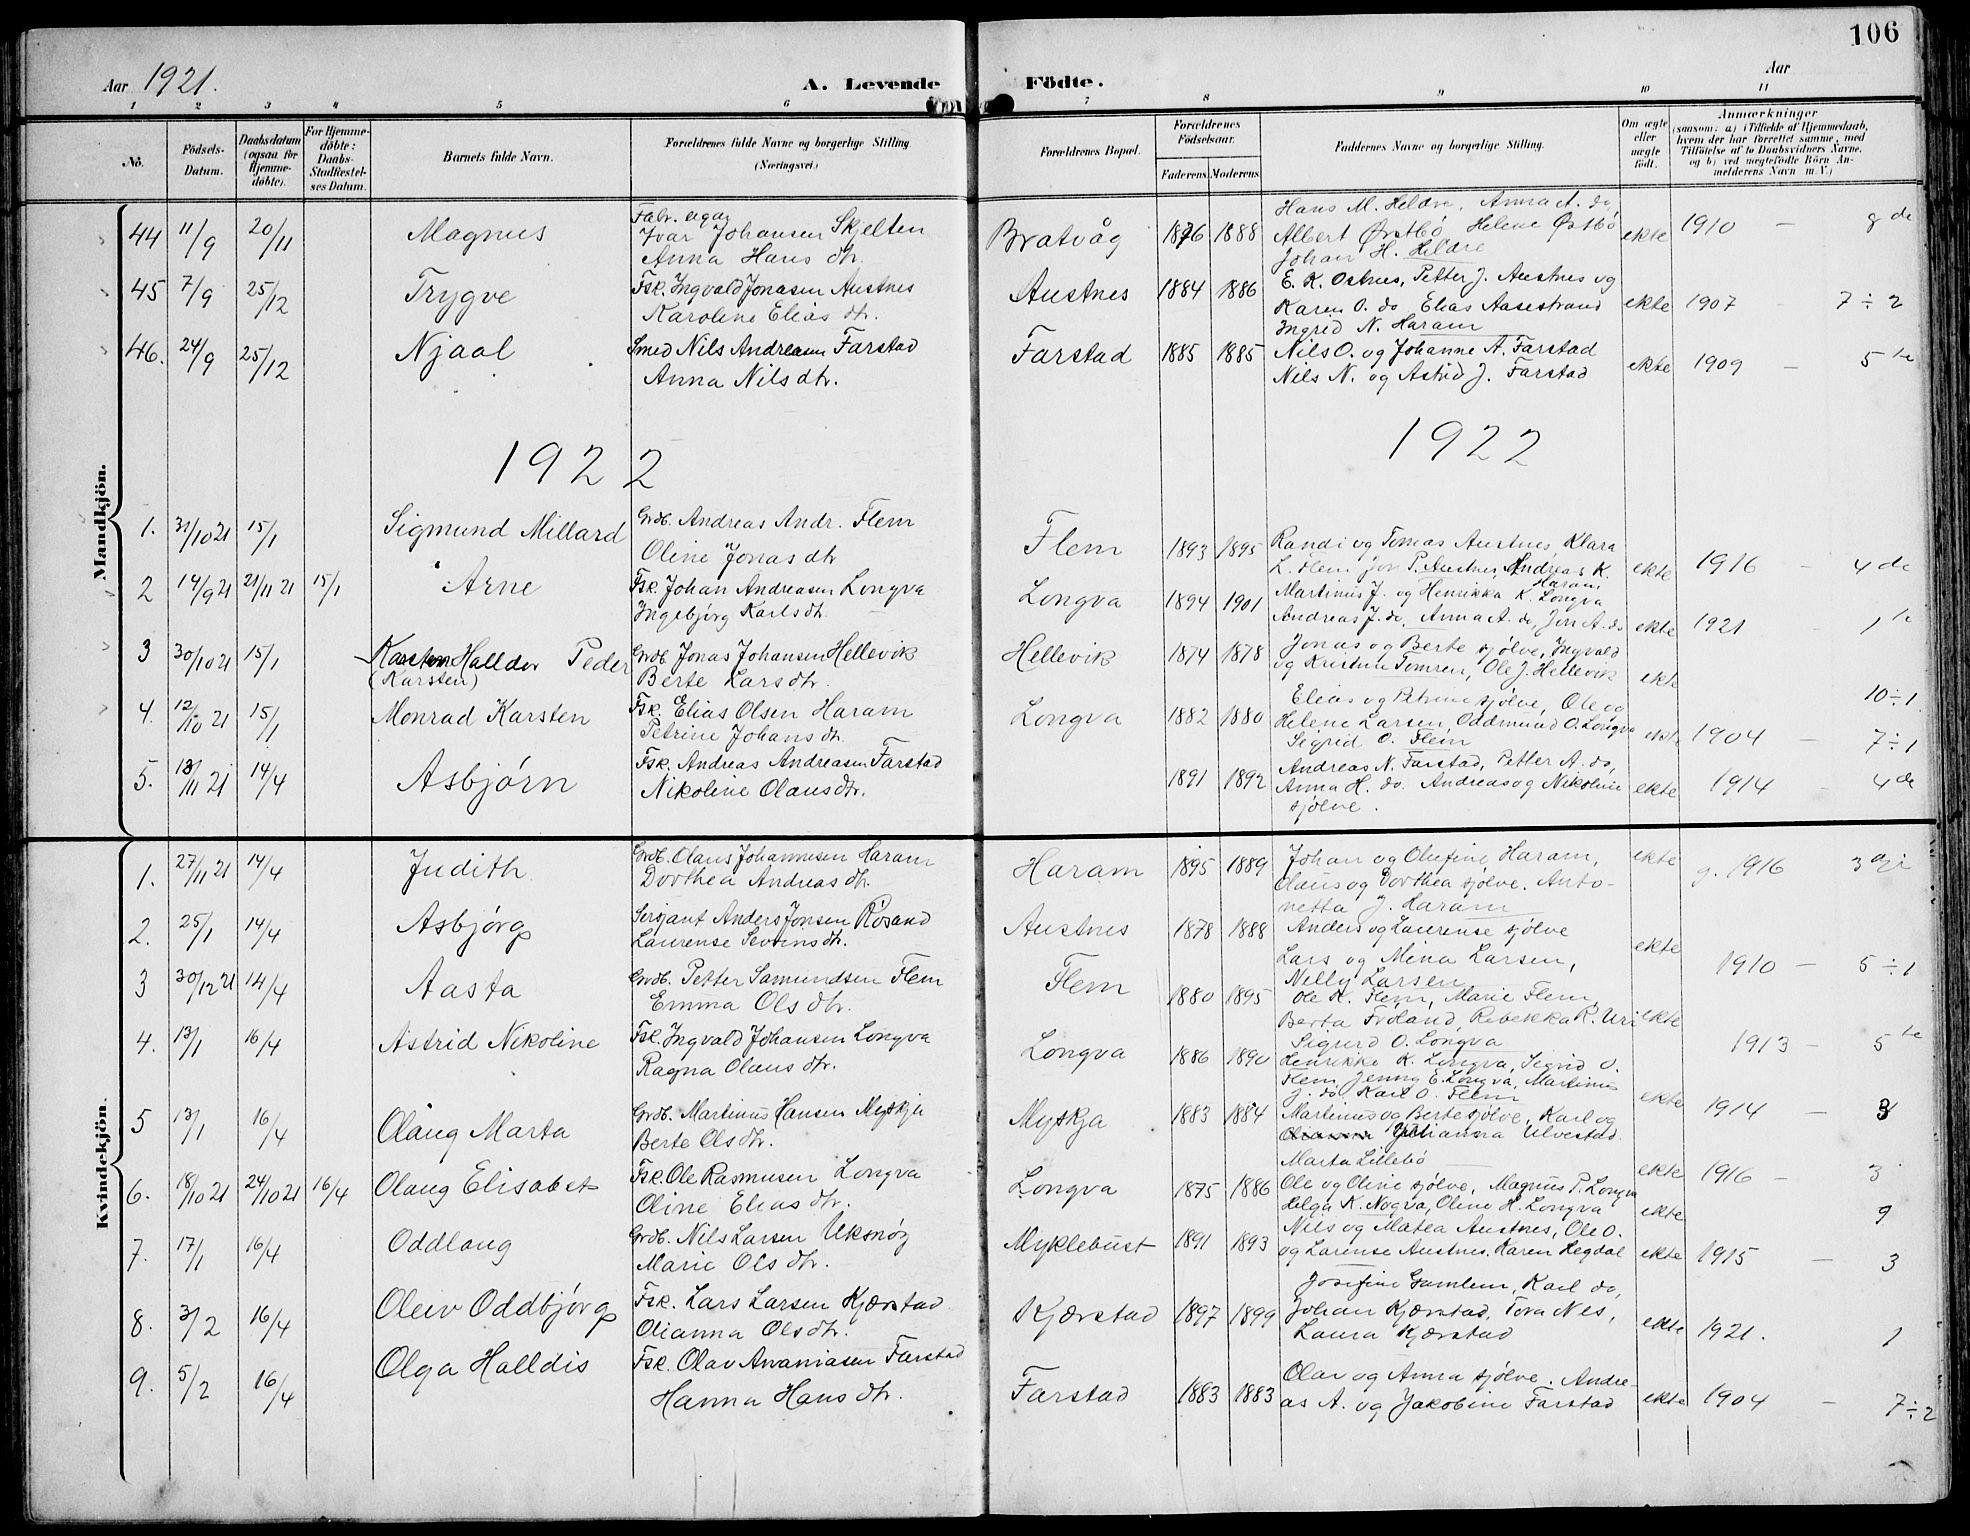 106
Aar 1921.
A. Levende Födte.
Aar
1 2 3 4 5 6 7 8 9 10 11
No.
Födsels-Datum.
Daabsdatum (ogsaa for Hjemme-döbte).
For Hjemme-döbte: Daabs-Stadfæstel-ses Datum.
Barnets fulde Navn.
Forældrenes fulde Navne og borgerlige Stilling (Næringsvei.)
Forældrenes Bopæl.
Forældrenes Födselsaar.
Faderens. Moderens.
Faddernes Navne og borgerlige Stilling.
Om ægte eller uægte födt.
Anmærkninger
(saasom: a) i Tilfælde af Hjemmedaab, hvem der har forrettet samme, med Tilföielse af to Daabsvidners Navne, og b) ved uægtefödte Börn An-melderens Navn m.V.)
Mandkjön.
44 11/9 20/11 Magnus Fabr. eigar Ivar Johansen Skjelten Anna Hans dtr. Bratvåg 1876 1888 Hans M. Heldre, Anna A. do, Albert Østbø Helene Østbø Johan H. Heldre ekte 1910 — 8 de
45 7/9 25/12 Trygve Fsk. Ingvald Jonasen Austnes Karoline Elias dtr. Austnes 1884 1886 E. K. Ostnes, Petter J. Austnes og Karen O. do Elias Aasestrand Ingrid N. Haram ekte 1907 7 ÷ 2
46. 24/9 25/12 Njaal Smed Nils Andreasen Farstad Anna Nils dtr. Farstad 1885 1885 Nils O. og Johanne A. Farstad Nils N. og Astrid J. Farstad ekte 1909 — 5 te
1922 1922
1. 31/10 21 15/1 Sigmund Millard Grdb. Andreas Andr. Flem Oline Jonas dtr Flem 1893 1895 Randi og Tomas Austnes, Klara L. Flem Jon P. Austnes, Andreas K. Haram ekte 1916 — 4 de
2 14/9 21 21/11 21 15/1 Arne Fsk. Johan Andreasen Longva Ingebjørg Karls dtr. Longva 1894 1901 Martinus J. og Henrikka K. Longva Andreas J. do, Anna A. do, Jon A. do ekte 1921 — 1 te
3 30/10 21 15/1 Karsten Halldor Peder (Karsten) Grdb Jonas Johansen Hellevik Berte Lars dtr. Hellevik 1874 1878 Jonas og Berte sjølve, Ingvald og Kristine Tomren, Ole J. Hellevik ekte 10 ÷ 1
4. 12/10 21 15/1 Monrad Karsten Fsk. Elias Olsen Haram Petrine Johans dtr. Longva 1882 1880 Elias og Petrine sjølve, Ole og Helene Larsen, Oddmund O. Longva Sigrid O. Flem ekte 1904 — 7 ÷ 1
5. 13/11 21 14/4 Asbjørn Fsk. Andreas Andreasen Farstad Nikoline Olaus dtr. 1891 1892 Andreas N. Farstad, Petter A. do, Anna H. do. Andreas og Nikoline sjølve. ekte 1914 — 4 de
Kvindekjön.
1. 27/11 21 14/4 Judith Grdb. Olaus Johannesen Haram Dorthea Andreas dtr. Haram 1895 1889 Johan og Olufine Haram, Olaus og Dorthea sjølve. Anto-netta J. Haram ekte g. 1916 3
2. 25/1 14/4 Asbjørg Sersjant Anders Jonsen Røsand Laurense Severins dtr. Austnes 1878 1888 Anders og Laurense sjølve Lars og Mina Larsen, Nelly Larsen ekte 1910 — 5 ÷ 1
3 30/12 21 14/4 Aasta Grdb. Petter Samundsen Flem Emma Ols dtr. Flem 1880 1895 Ole K. Flem, Marie Flem, Berta Frøland, Rebekka R. Uri Sigurd O. Longva ekte 1913 — 5 te
4. 13/1 16/4 Astrid Nikoline Fsk. Ingvald Johansen Longva Ragna Olaus dtr. Longva 1886 1890 Henrikke K. Longva, Sigrid O. Flem Jenny E. Longva, Martinus J. do Karl O. Flem ekte 1914 — 3
5 13/1 16/4 Olaug Marta Grdb. Martinus Hansen Myskja Berte Ols dtr. Myskja 1883 1884 Martinus og Berte sjølve, Karl og Julianna Ulvestad. Marta Lillebø ekte 1916 — 3
6. 18/10 21 24/10 21 16/4 Olaug Elisabet Fsk. Ole Rasmusen Longva Oline Elias dtr. Longva 1875 1886 Ole og Oline sjølve, Magnus P. Longva Helga K. Nogva, Oline H. Longva ekte 9
7. 17/1 16/4 Oddlaug Grdb. Nils Larsen Uksnøy Marie Ols dtr. Myklebust 1891 1893 Nils og Matea Austnes, Ole O. og Larense Austnes, Karen Hegdal ekte 1915 — 3
8. 3/2 16/4 Oleiv Oddbjørg Fsk. Lars Larsen Kjærstad Olianna Ols dtr. Kjærstad 1897 1899 Josefine Gamlem, Karl do, Johan Kjærstad, Tora Nes, Laura Kjærstad ekte 1921. 1
9. 5/2 16/4 Olga Halldis Fsk. Olav Ananiasen Farstad Hanna Hans dtr. Farstad 1883 1883 Olav og Anna sjølve. Andre-as A. og Jakobine Farstad ekte 1904 — 7 ÷ 2